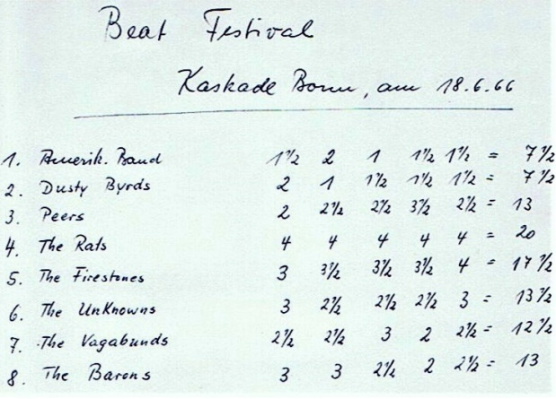 Beat Festival
Kaskade Bonn, am 18.6.66
1. Amerik. Band 1 1/2 2 1 1 1/2 1 1/2 = 7 1/2
2. Dusty Byrds 2 1 1 1/2 1 1/2 1 1/2 = 7 1/2
3. Peers 2 2 1/2 2 1/2 3 1/2 2 1/2 = 13
4. The Rats 4 4 4 4 4 = 20
5. The Firestones 3 3 1/2 3 1/2 3 1/2 4 = 17 1/2
6. The UnKnowns 3 2 1/2 2 1/2 2 1/2 3 = 13 1/2
7. The Vagabunds 2 1/2 2 1/2 3 2 2 1/2 = 12 1/2
8. The Barons 3 3 2 1/2 2 2 1/2 = 13